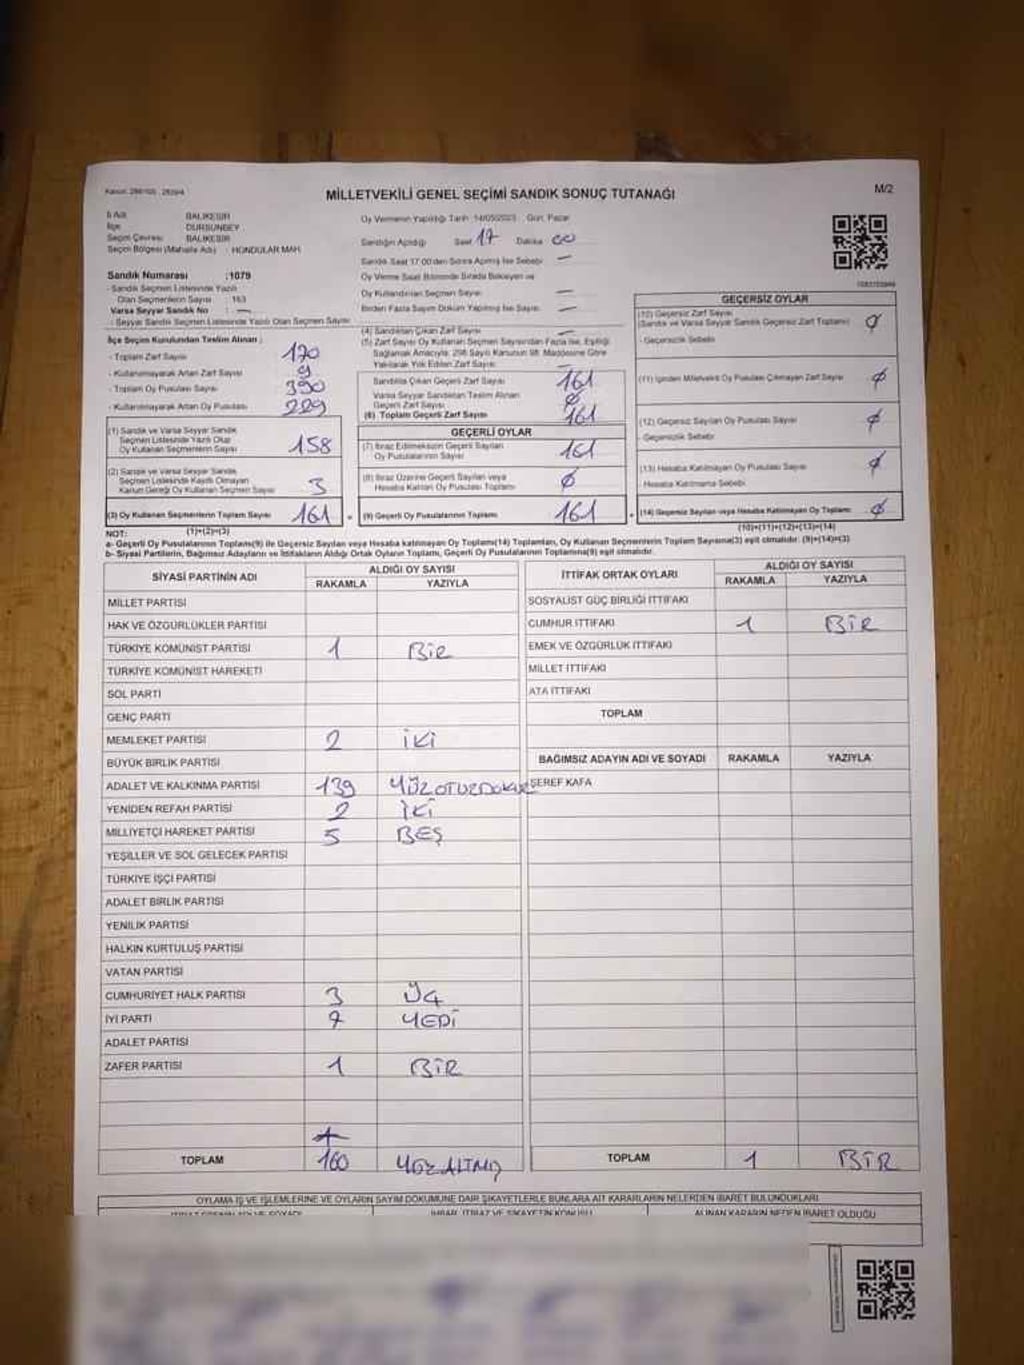 MİLLETVEKİLİ GENEL SEÇİMİ SANDIK SONUÇ TUTANAĞI
M/2
İl Adı BALIKESİR
İlçe DURSUNBEY
Seçim Çevresi BALIKESİR
Seçim Bölgesi (Mahalle Adı) : HONDULAR MAH.
Sandık Numarası :1079
- Sandık Seçmen Listesinde Yazılı
Olan Seçmenlerin Sayısı : 163
Varsa Seyyar Sandık No : —
- Seyyar Sandık Seçmen Listesinde Yazılı Olan Seçmen Sayısı
İlçe Seçim Kurulundan Teslim Alınan ;
- Toplam Zarf Sayısı 170
- Kullanılmayarak Artan Zarf Sayısı 9
- Toplam Oy Pusulası Sayısı 390
- Kullanılmayarak Artan Oy Pusulası 229
(1) Sandık ve Varsa Seyyar Sandık
Seçmen Listesinde Yazılı Olup
Oy Kullanan Seçmenlerin Sayısı 158
(2) Sandık ve Varsa Seyyar Sandık
Seçmen Listesinde Kayıtlı Olmayan
Kanun Gereği Oy Kullanan Seçmen Sayısı 3
(3) Oy Kullanan Seçmenlerin Toplam Sayısı 161
(1)+(2)=(3)
Oy Vermenin Yapıldığı Tarih :14/05/2023 Gün: Pazar
Sandığın Açıldığı Saat 17 Dakika 00
Sandık Saat 17:00'den Sonra Açılmış İse Sebebi —
Oy Verme Saati Bitiminde Sırada Bekleyen ve
Oy Kullandırılan Seçmen Sayısı —
Birden Fazla Sayım Döküm Yapılmış İse Sayısı —
(4) Sandıktan Çıkan Zarf Sayısı —
(5) Zarf Sayısı Oy Kullanan Seçmen Sayısından Fazla İse, Eşitliği
Sağlamak Amacıyla; 298 Sayılı Kanunun 98. Maddesine Göre
Yakılarak Yok Edilen Zarf Sayısı —
Sandıkta Çıkan Geçerli Zarf Sayısı 161
Varsa Seyyar Sandıktan Teslim Alınan
Geçerli Zarf Sayısı Ø
(6) Toplam Geçerli Zarf Sayısı 161
GEÇERLİ OYLAR
(7) İtiraz Edilmeksizin Geçerli Sayılan
Oy Pusulalarının Sayısı 161
(8) İtiraz Üzerine Geçerli Sayılan veya
Hesaba Katılan Oy Pusulası Toplamı Ø
(9) Geçerli Oy Pusulalarının Toplamı 161
GEÇERSİZ OYLAR
(10) Geçersiz Zarf Sayısı
(Sandık ve Varsa Seyyar Sandık Geçersiz Zarf Toplamı) Ø
- Geçersizlik Sebebi
(11) İçinden Milletvekili Oy Pusulası Çıkmayan Zarf Sayısı Ø
(12) Geçersiz Sayılan Oy Pusulası Sayısı Ø
- Geçersizlik Sebebi
(13) Hesaba Katılmayan Oy Pusulası Sayısı Ø
Hesaba Katılmama Sebebi
(14) Geçersiz Sayılan veya Hesaba Katılmayan Oy Toplamı Ø
(10)+(11)+(12)+(13)=(14)
NOT:
a- Geçerli Oy Pusulalarının Toplamı(9) ile Geçersiz Sayılan veya Hesaba katılmayan Oy Toplamı(14) Toplamları, Oy Kullanan Seçmenlerin Toplam Sayısına(3) eşit olmalıdır. (9)+(14)=(3)
b- Siyasi Partilerin, Bağımsız Adayların ve İttifakların Aldığı Ortak Oyların Toplamı, Geçerli Oy Pusulalarının Toplamına(9) eşit olmalıdır.
SİYASİ PARTİNİN ADI ALDIĞI OY SAYISI
RAKAMLA YAZIYLA
MİLLET PARTİSİ
HAK VE ÖZGÜRLÜKLER PARTİSİ
TÜRKİYE KOMÜNİST PARTİSİ 1 BİR
TÜRKİYE KOMÜNİST HAREKETİ
SOL PARTİ
GENÇ PARTİ
MEMLEKET PARTİSİ 2 İKİ
BÜYÜK BİRLİK PARTİSİ
ADALET VE KALKINMA PARTİSİ 139 YÜZOTUZDOKUZ
YENİDEN REFAH PARTİSİ 2 İKİ
MİLLİYETÇİ HAREKET PARTİSİ 5 BEŞ
YEŞİLLER VE SOL GELECEK PARTİSİ
TÜRKİYE İŞÇİ PARTİSİ
ADALET BİRLİK PARTİSİ
YENİLİK PARTİSİ
HALKIN KURTULUŞ PARTİSİ
VATAN PARTİSİ
CUMHURİYET HALK PARTİSİ 3 ÜÇ
İYİ PARTİ 7 YEDİ
ADALET PARTİSİ
ZAFER PARTİSİ 1 BİR
TOPLAM 160 YÜZALTMIŞ
İTTİFAK ORTAK OYLARI ALDIĞI OY SAYISI
RAKAMLA YAZIYLA
SOSYALİST GÜÇ BİRLİĞİ İTTİFAKI
CUMHUR İTTİFAKI 1 BİR
EMEK VE ÖZGÜRLÜK İTTİFAKI
MİLLET İTTİFAKI
ATA İTTİFAKI
TOPLAM
BAĞIMSIZ ADAYIN ADI VE SOYADI RAKAMLA YAZIYLA
ŞEREF KAFA
TOPLAM 1 BİR
OYLAMA İŞ VE İŞLEMLERİNE VE OYLARIN SAYIM DÖKÜMÜNE DAİR ŞİKAYETLERLE BUNLARA AİT KARARLARIN NELERDEN İBARET BULUNDUKLARI
İHBAR, İTİRAZ VE ŞİKAYETİN KONUSU
ALINAN KARARIN NEDEN İBARET OLDUĞU